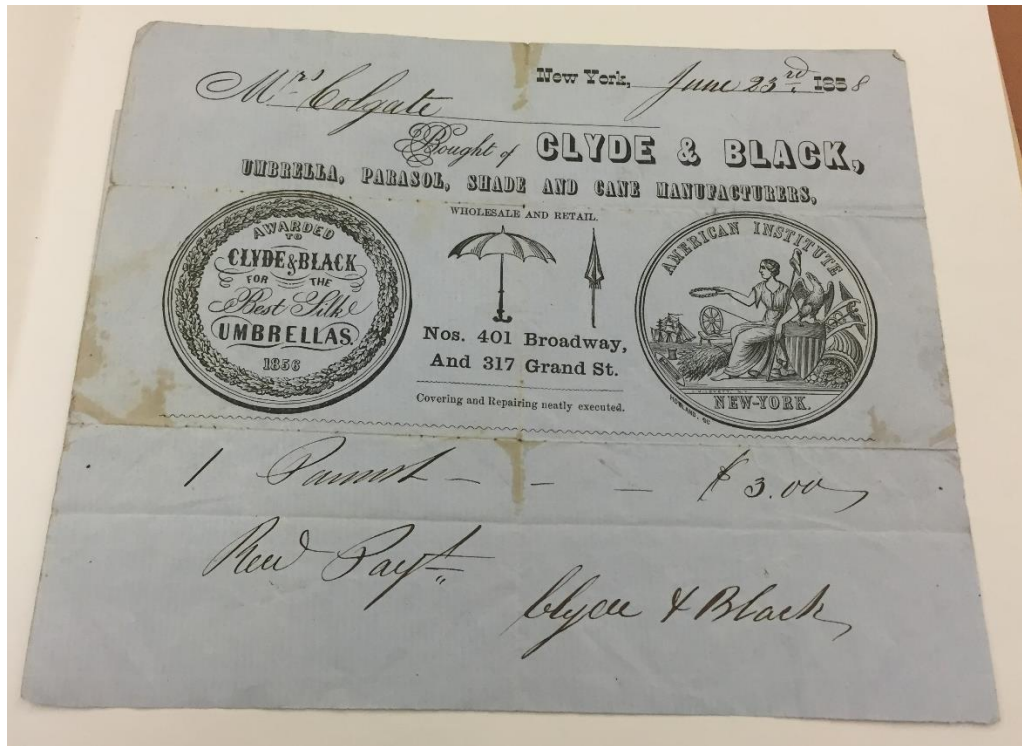 New York, June 23rd 1858
Mrs Colgate
Bought of CLYDE & BLACK,
UMBRELLA, PARASOL, SHADE AND CANE MANUFACTURERS,
WHOLESALE AND RETAIL.
AWARDED
TO
CLYDE & BLACK
FOR THE
Best Silk
UMBRELLAS.
1856
Nos. 401 Broadway,
And 317 Grand St.
Covering and Repairing neatly executed.
AMERICAN INSTITUTE
NEW-YORK.
1 - - - $3.00
Recd Payt
Clyde & Black